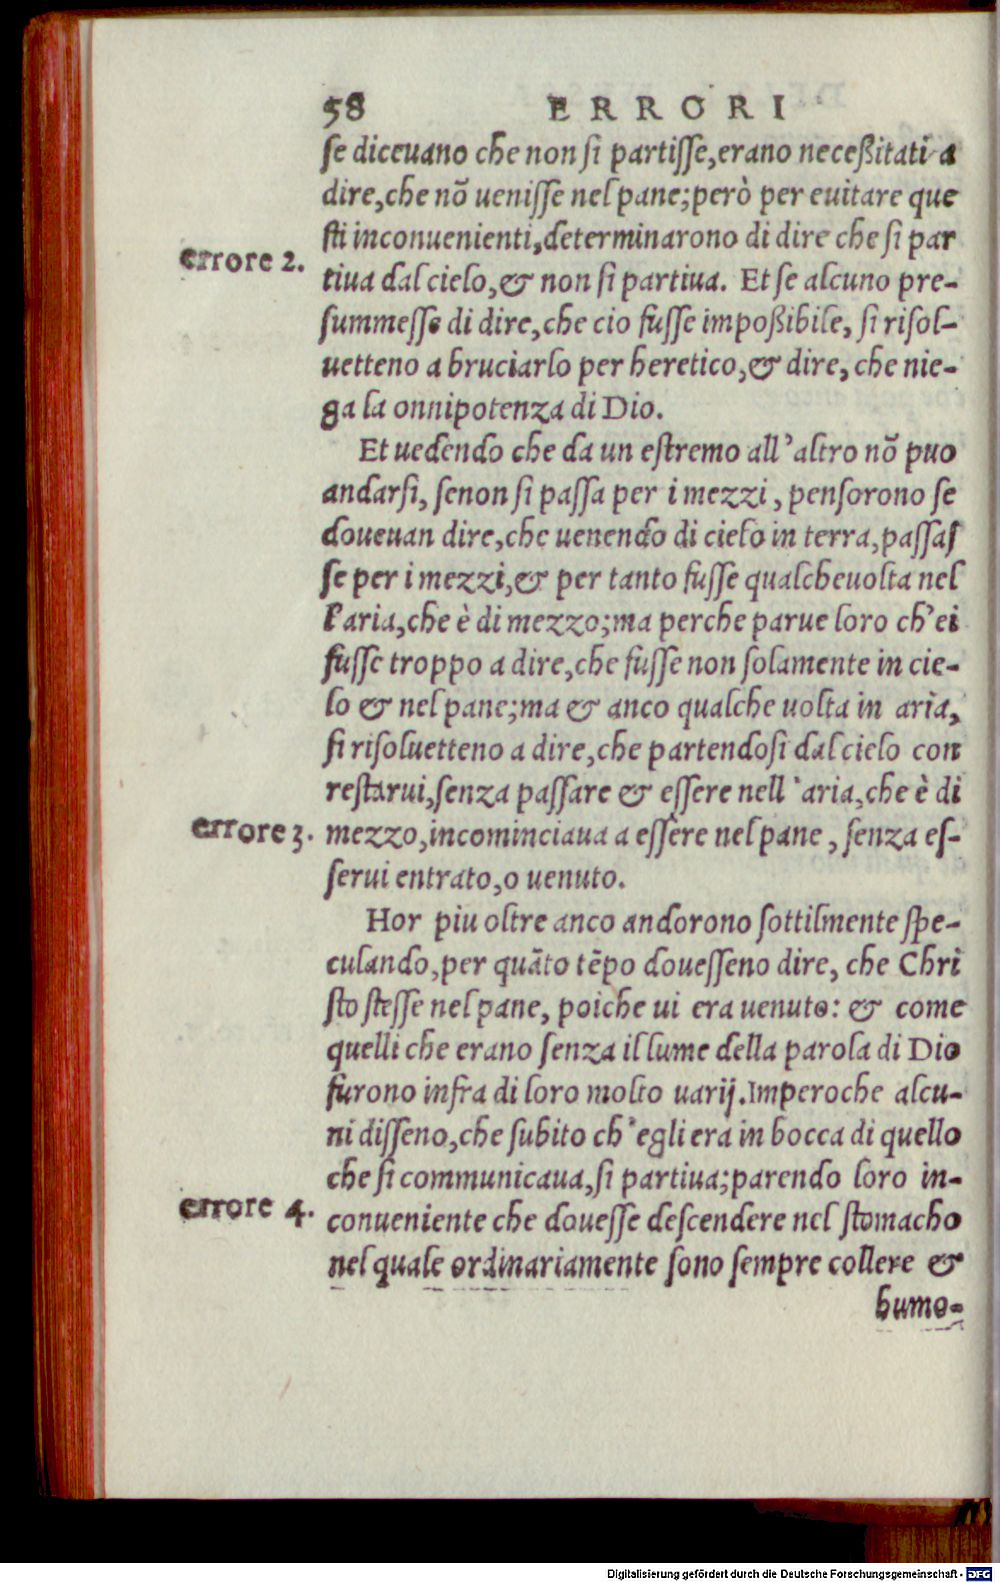 58 ERRORI
se diceuano che non si partisse, erano neceßitati a
dire, che nõ uenisse nel pane; però per euitare que
sti inconuenienti, determinarono di dire che si par
errore 2.
tiua dal cielo, & non si partiua. Et se alcuno pre-
summesse di dire, che cio fusse impoßibile, si risol-
uetteno a bruciarlo per heretico, & dire, che nie-
ga la onnipotenza di Dio.
Et uedendo che da un estremo all'altro nõ puo
andarsi, senon si passa per i mezzi, pensorono se
doueuan dire, che uenendo di cielo in terra, passas
se per i mezzi, & per tanto fusse qualcheuolta nel
l'aria, che è di mezzo; ma perche parue loro ch'ei
fusse troppo a dire, che fusse non solamente in cie-
lo & nel pane; ma & anco qualche uolta in aria,
si risoluetteno a dire, che partendosi dal cielo con
restarui, senza passare & essere nell'aria, che è di
errore 3.
mezzo, incominciaua a essere nel pane, senza es-
serui entrato, o uenuto.
Hor piu oltre anco andorono sottilmente spe-
culando, per quãto tẽpo douesseno dire, che Chri
sto stesse nel pane, poiche ui era uenuto: & come
quelli che erano senza il lume della parola di Dio
furono infra di loro molto uarij. Imperoche alcu-
ni disseno, che subito ch'egli era in bocca di quello
che si communicaua, si partiua; parendo loro in-
errore 4.
conueniente che douesse descendere nel stomacho
nel quale ordinariamente sono sempre collere &
humo-
Digitalisierung gefördert durch die Deutsche Forschungsgemeinschaft - DFG